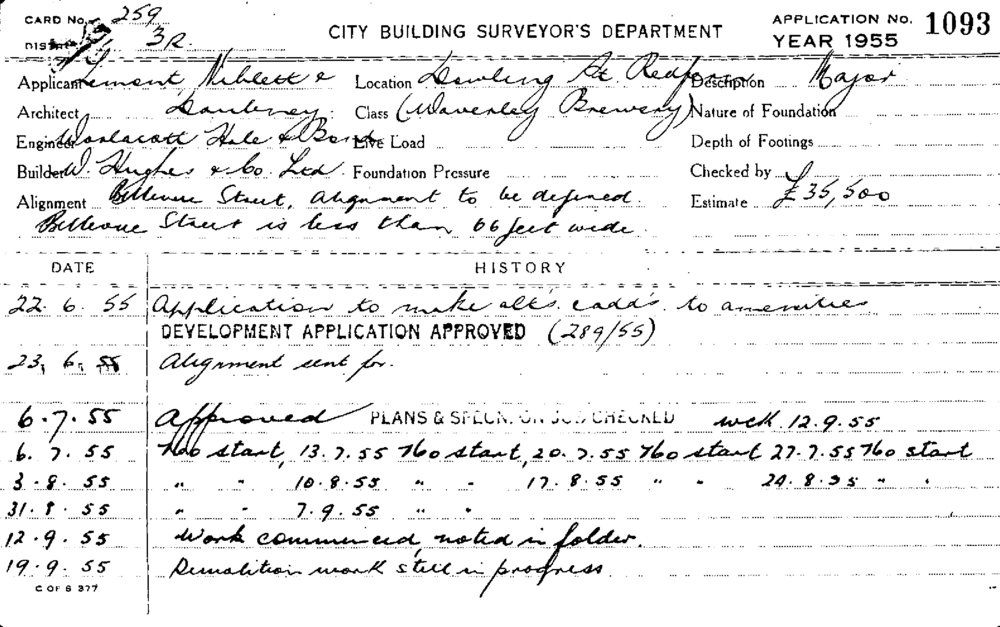 CARD No. 259
DIST. 3R.
CITY BUILDING SURVEYOR'S DEPARTMENT
APPLICATION No. 1093
YEAR 1955
Applicant Niblett &
Location Dowling St. Redfern
Description Major
Architect Daubney
Class (Waverley Brewery)
Nature of Foundation
Engineer Woolacott Hale & Bond
Live Load
Depth of Footings
Builder W. Hughes & Co. Ltd.
Foundation Pressure
Checked by
Alignment Bellevue Street, alignment to be defined.
Estimate £35,500
Bellevue Street is less than 66 feet wide.
DATE HISTORY
22. 6. 55 Application to make alt's. & add's. to amenities
DEVELOPMENT APPLICATION APPROVED (289/55)
23. 6. 55 Alignment sent for.
6. 7. 55 Approved PLANS & SPECN. ON JOB CHECKED 12.9.55
6. 7. 55 No start, 13.7.55 No start, 20.7.55 No start 27.7.55 No start
3. 8. 55 " " 10.8.55 " " 17.8.55 " " 24.8.55 " "
31. 8. 55 " " 7.9.55 " "
12. 9. 55 Work commenced, noted in folder.
19. 9. 55 Demolition work still in progress
C OF S 377